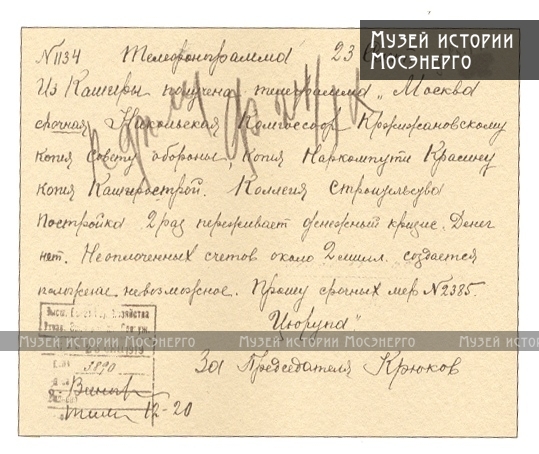 МУЗЕЙ ИСТОРИИ
МОСЭНЕРГО
№ 1134 Телефонограмма 23
Из Каширы получена телеграмма „Москва
срочная Никольская Комгоссоор Кржижановскому
копия Совету обороны, копия Наркомпути Красину
копия Каширострой. Коллегия Строительсва
Постройка 2 раз переживает денежный кризис. Денег
нет. Неоплоченных счетов около 2 милл. создается
положение невозможное. Прошу срочных мер № 2385.
Цюрупа"
За Председателя Крюков
МУЗЕЙ ИСТОРИИ МОСЭНЕРГО МУЗЕЙ ИСТОРИИ МОСЭНЕРГО МУЗЕЙ ИСТОРИИ МОСЭНЕРГО
3890
12-20